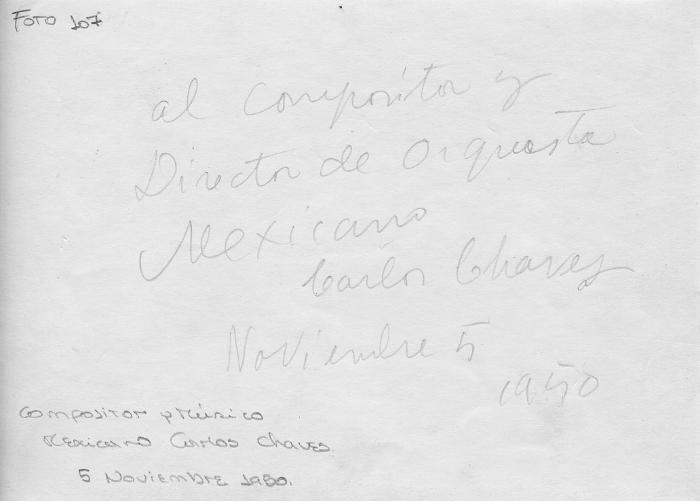 FOTO 107
al compositor y
Director de Orquesta
Mexicano
Carlos Chavez
Noviembre 5
1950
Compositor y Músico
Mexicano Carlos Chaves
5 Noviembre 1950.